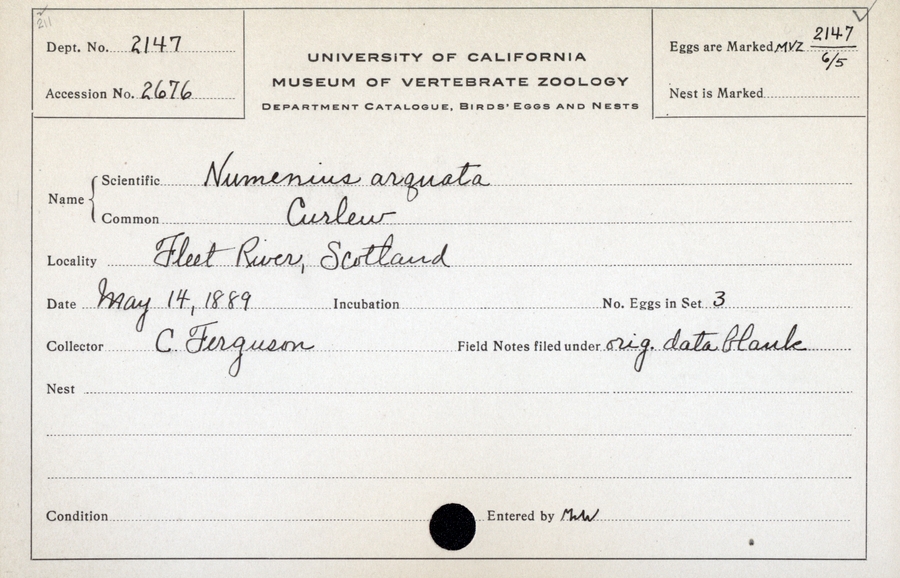 211
Dept. No. 2147
Accession No. 2676
UNIVERSITY OF CALIFORNIA
MUSEUM OF VERTEBRATE ZOOLOGY
DEPARTMENT CATALOGUE, BIRDS' EGGS AND NESTS
Eggs are Marked MVZ 2147
6/5
Nest is Marked
Name
Scientific Numenius arquata
Common Curlew
Locality Fleet River, Scotland
Date May 14, 1889 Incubation No. Eggs in Set 3
Collector C. Ferguson Field Notes filed under orig. data blank
Nest
Condition Entered by